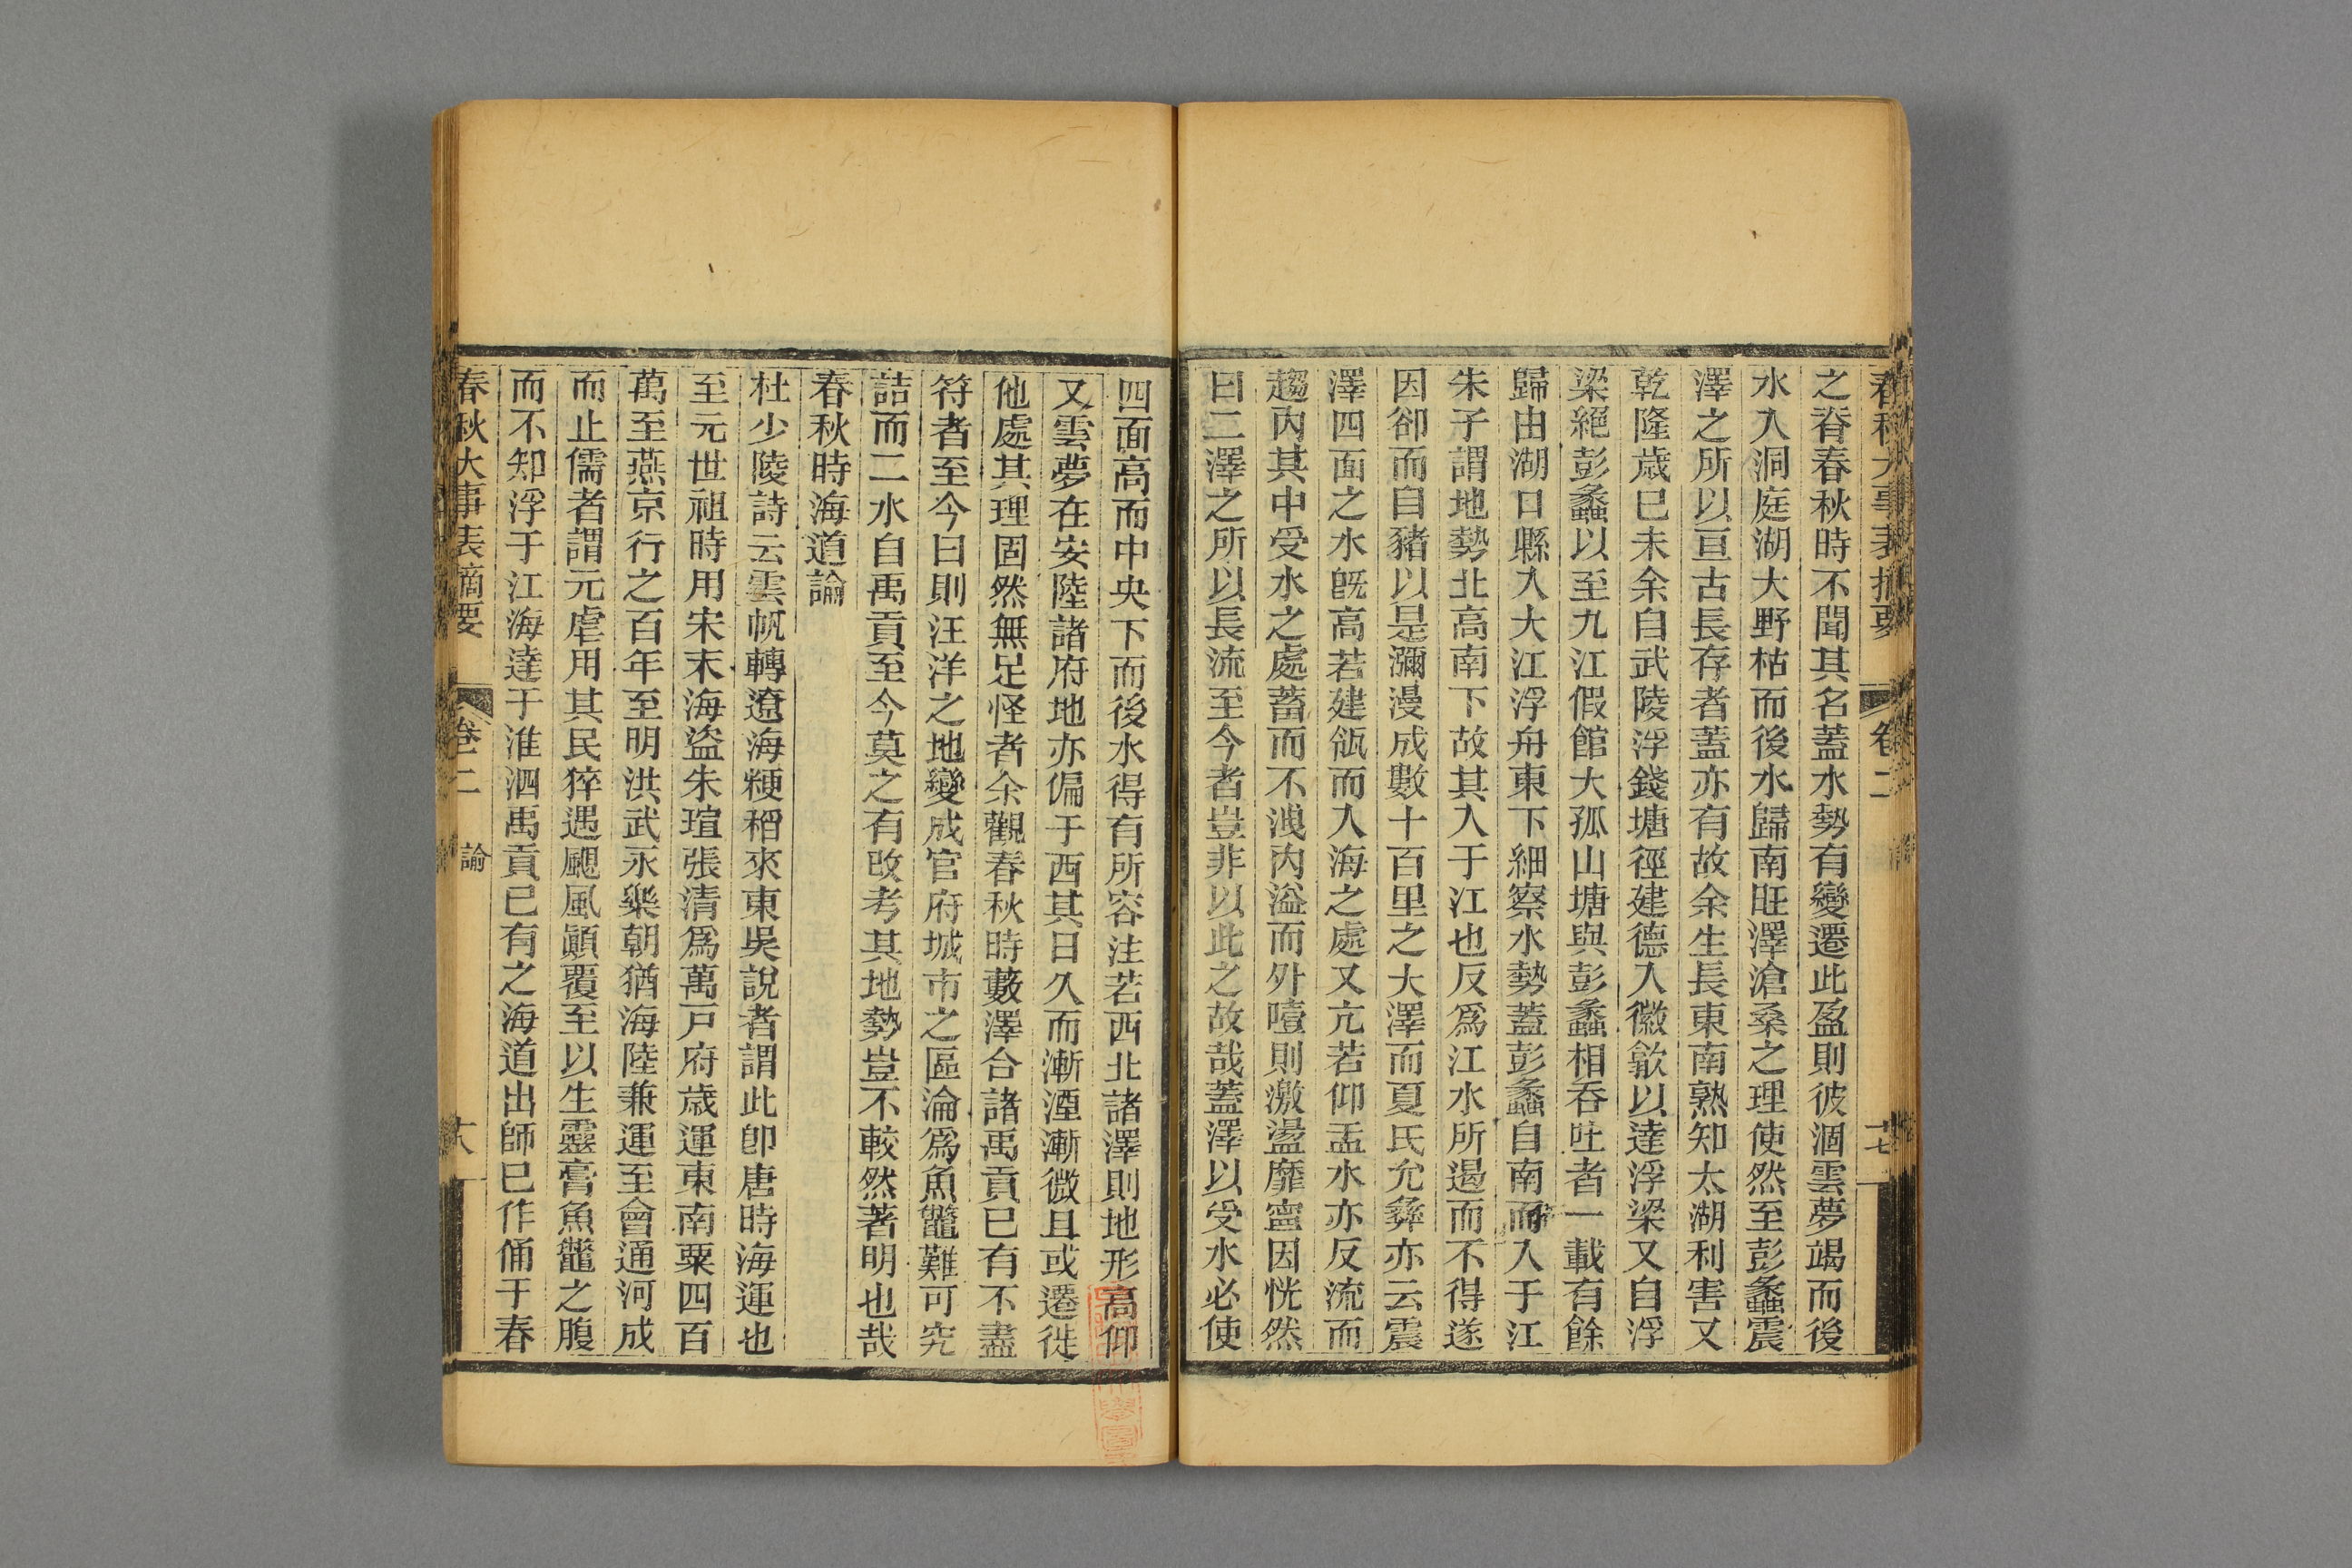 春秋大事表摘要
卷二
論
十七
之脊春秋時不聞其名蓋水勢有變遷此盈則彼涸雲夢竭而後
水入洞庭湖大野枯而後水歸南旺澤滄桑之理使然至彭蠡震
澤之所以亘古長存者蓋亦有故余生長東南熟知太湖利害又
乾隆歲已未余自武陵浮錢塘徑建德入徽歙以達浮梁又自浮
梁絕彭蠡以至九江假館大孤山塘與彭蠡相吞吐者一載有餘
歸由湖口縣入大江浮舟東下細察水勢蓋彭蠡自南而入于江
朱子謂地勢北高南下故其入于江也反爲江水所遏而不得遂
因卻而自豬以是瀰漫成數十百里之大澤而夏氏允彝亦云震
澤四面之水旣高若建瓴而入海之處又亢若仰盂水亦反流而
趨內其中受水之處蓄而不洩內溢而外噎則激盪靡寍因恍然
曰二澤之所以長流至今者豈非以此之故哉蓋澤以受水必使
四面高而中央下而後水得有所容注若西北諸澤則地形高仰
又雲夢在安陸諸府地亦偏于西其日久而漸湮漸微且或遷徙
他處其理固然無足怪者余觀春秋時藪澤合諸禹貢已有不盡
符者至今日則汪洋之地變成官府城市之區淪爲魚鼈難可究
詰而二水自禹貢至今莫之有改考其地勢豈不較然著明也哉
春秋時海道論
杜少陵詩云雲帆轉遼海粳稻來東吳說者謂此卽唐時海運也
至元世祖時用宋末海盜朱瑄張清爲萬戸府歲運東南粟四百
萬至燕京行之百年至明洪武永樂朝猶海陸兼運至會通河成
而止儒者謂元虐用其民猝遇颶風顚覆至以生靈膏魚鼈之腹
而不知浮于江海達于淮泗禹貢已有之海道出師已作俑于春
春秋大事表摘要
卷二
論
十八